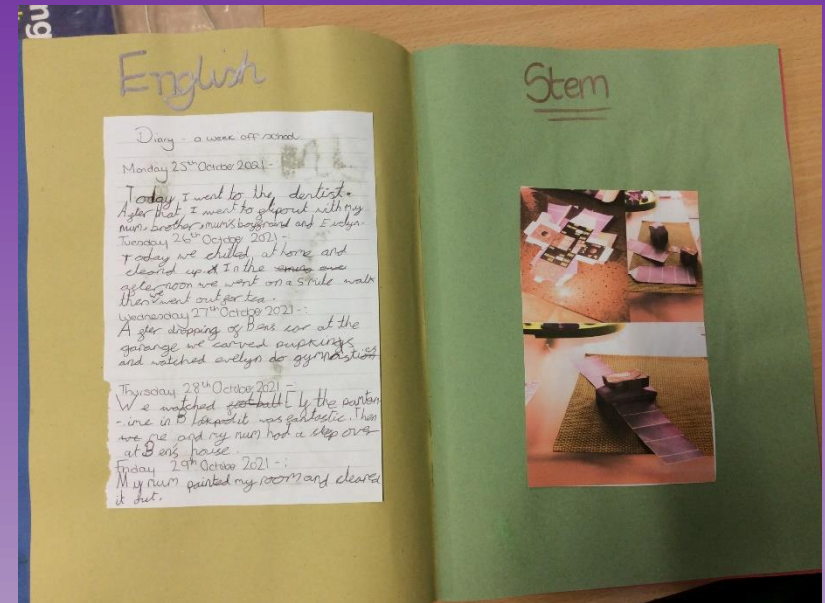 ng
English
Diary - a week off school
Monday 25th October 2021 -
Today I went to the dentist.
After that I went to flipout with my
mum, brother, mum's boyfriend and Evelyn.
Tuesday 26th October 2021 -
Today we chilled at home and
cleand up In the
afternoon we went on a 5 mile walk
then we went out for tea.
Wednesday 27th October 2021 - :
After dropping of Bens car at the
garange we carved pupkings
and watched evelyn do gymnastics
Thursday 28th October 2021 -
We watched football Ely the pantom
-ime in B it was fantastic. Then
we me and my mum had a sleep over
at Ben's house.
Friday 29th October 2021 - :
My mum painted my room and cleared
it out.
Stem